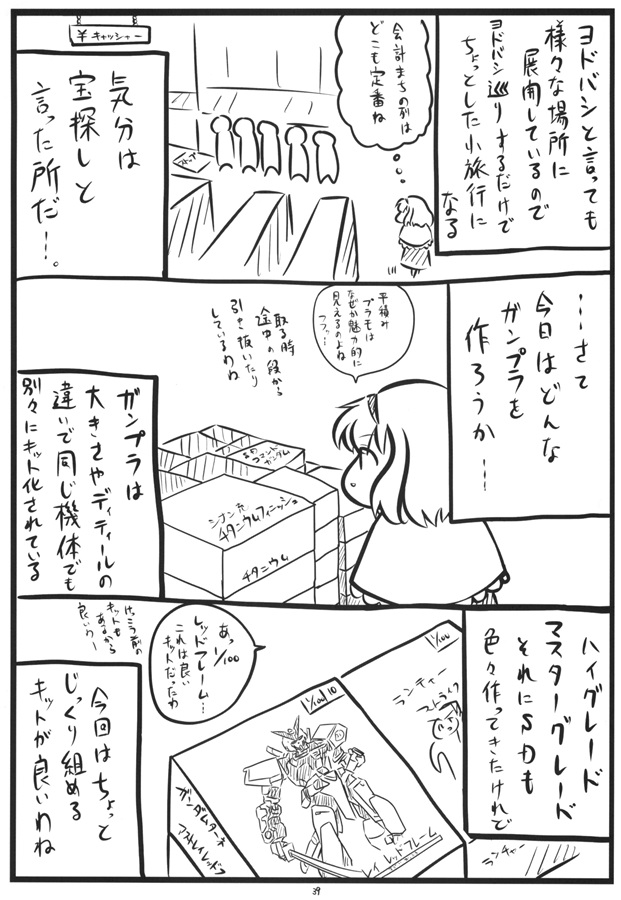 ヨドバシと言っても
様々な場所に
展開しているので
ヨドバシ巡りするだけで
ちょっとした小旅行に
なる
会計まちの列は
どこも定番ね
¥キャッシャー
気分は
宝探しと
言った所だ…。
…さて
今日はどんな
ガンプラを
作ろうか…
平積み
プラモは
なぜか魅力的に
見えるのよね
フフッ…
取る時
途中の段から
引き抜いたり
しているわね
コマンド
ガンダム
シナンジュ
チタニウムフィニッシュ
チタニウム
ガンプラは
大きさやディティールの
違いで同じ機体でも
別々にキット化されている
ハイグレード
マスターグレード
それにSDも
色々作ってきたけれど
あっ
1/100
レッドフレーム…
これは良い
キットだったわ
けっこう前の
キットも
あるから
良いわー
1/100
ランチャー
ストライク
1/100
レッドフレーム
ランチャー
今回はちょっと
じっくり組める
キットが良いわね
39